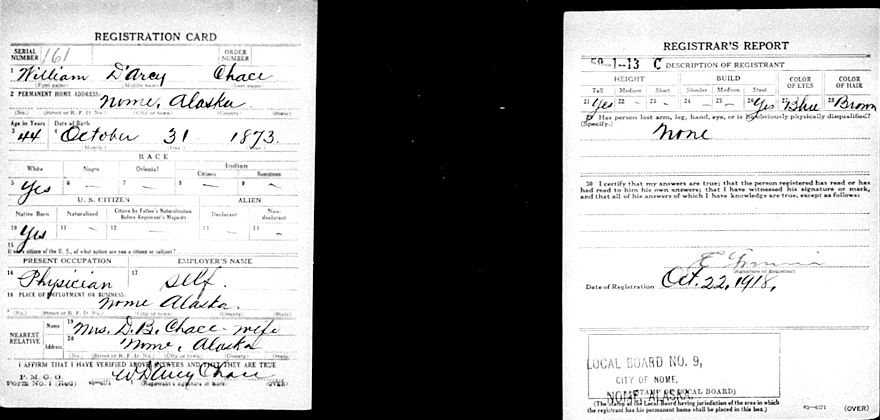 REGISTRATION CARD
SERIAL NUMBER 161 ORDER NUMBER
1 William D'Arcy Chace
(First name) (Middle name) (Last name)
2 PERMANENT HOME ADDRESS:
Nome, Alaska
(No.) (Street or R. F. D. No.) (City or town) (County) (State)
Age in Years Date of Birth
3 44 4 October 31 1873.
(Month.) (Day.) (Year.)
RACE
White Negro Oriental Indian
Citizen Noncitizen
5 Yes 6 – 7 – 8 – 9 –
U. S. CITIZEN ALIEN
Native Born Naturalized Citizen by Father's Naturalization Before Registrant's Majority Declarant Non-declarant
10 Yes 11 – 12 – 13 – 14 –
15
If not a citizen of the U. S., of what nation are you a citizen or subject?
PRESENT OCCUPATION EMPLOYER'S NAME
16 Physician 17 self.
18 PLACE OF EMPLOYMENT OR BUSINESS:
Nome Alaska.
(No.) (Street or R. F. D. No.) (City or town) (County) (State)
NEAREST RELATIVE Name 19 Mrs. D.B. Chace - wife
Address 20 Nome, Alaska
(No.) (Street or R. F. D. No.) (City or town) (County) (State)
I AFFIRM THAT I HAVE VERIFIED ABOVE ANSWERS AND THAT THEY ARE TRUE
P. M. G. O.
Form No. 1 (Red) W D'Arcy Chace
(Registrant's signature or mark) (OVER)
REGISTRAR'S REPORT
59-1-13 C DESCRIPTION OF REGISTRANT
HEIGHT BUILD COLOR OF EYES COLOR OF HAIR
Tall Medium Short Slender Medium Stout
21 Yes 22 – 23 – 24 – 25 – 26 Yes 27 Blue 28 Brown
29 Has person lost arm, leg, hand, eye, or is he obviously physically disqualified?
(Specify.) None
30 I certify that my answers are true; that the person registered has read or has
had read to him his own answers; that I have witnessed his signature or mark,
and that all of his answers of which I have knowledge are true, except as follows:
(Signature of Registrar)
Date of Registration Oct. 22, 1918,
LOCAL BOARD NO. 9,
CITY OF NOME,
NOME, ALASKA.
(STAMP OF LOCAL BOARD)
(The stamp of the Local Board having jurisdiction of the area in which
the registrant has his permanent home shall be placed in this box.)
03—6171 (OVER)